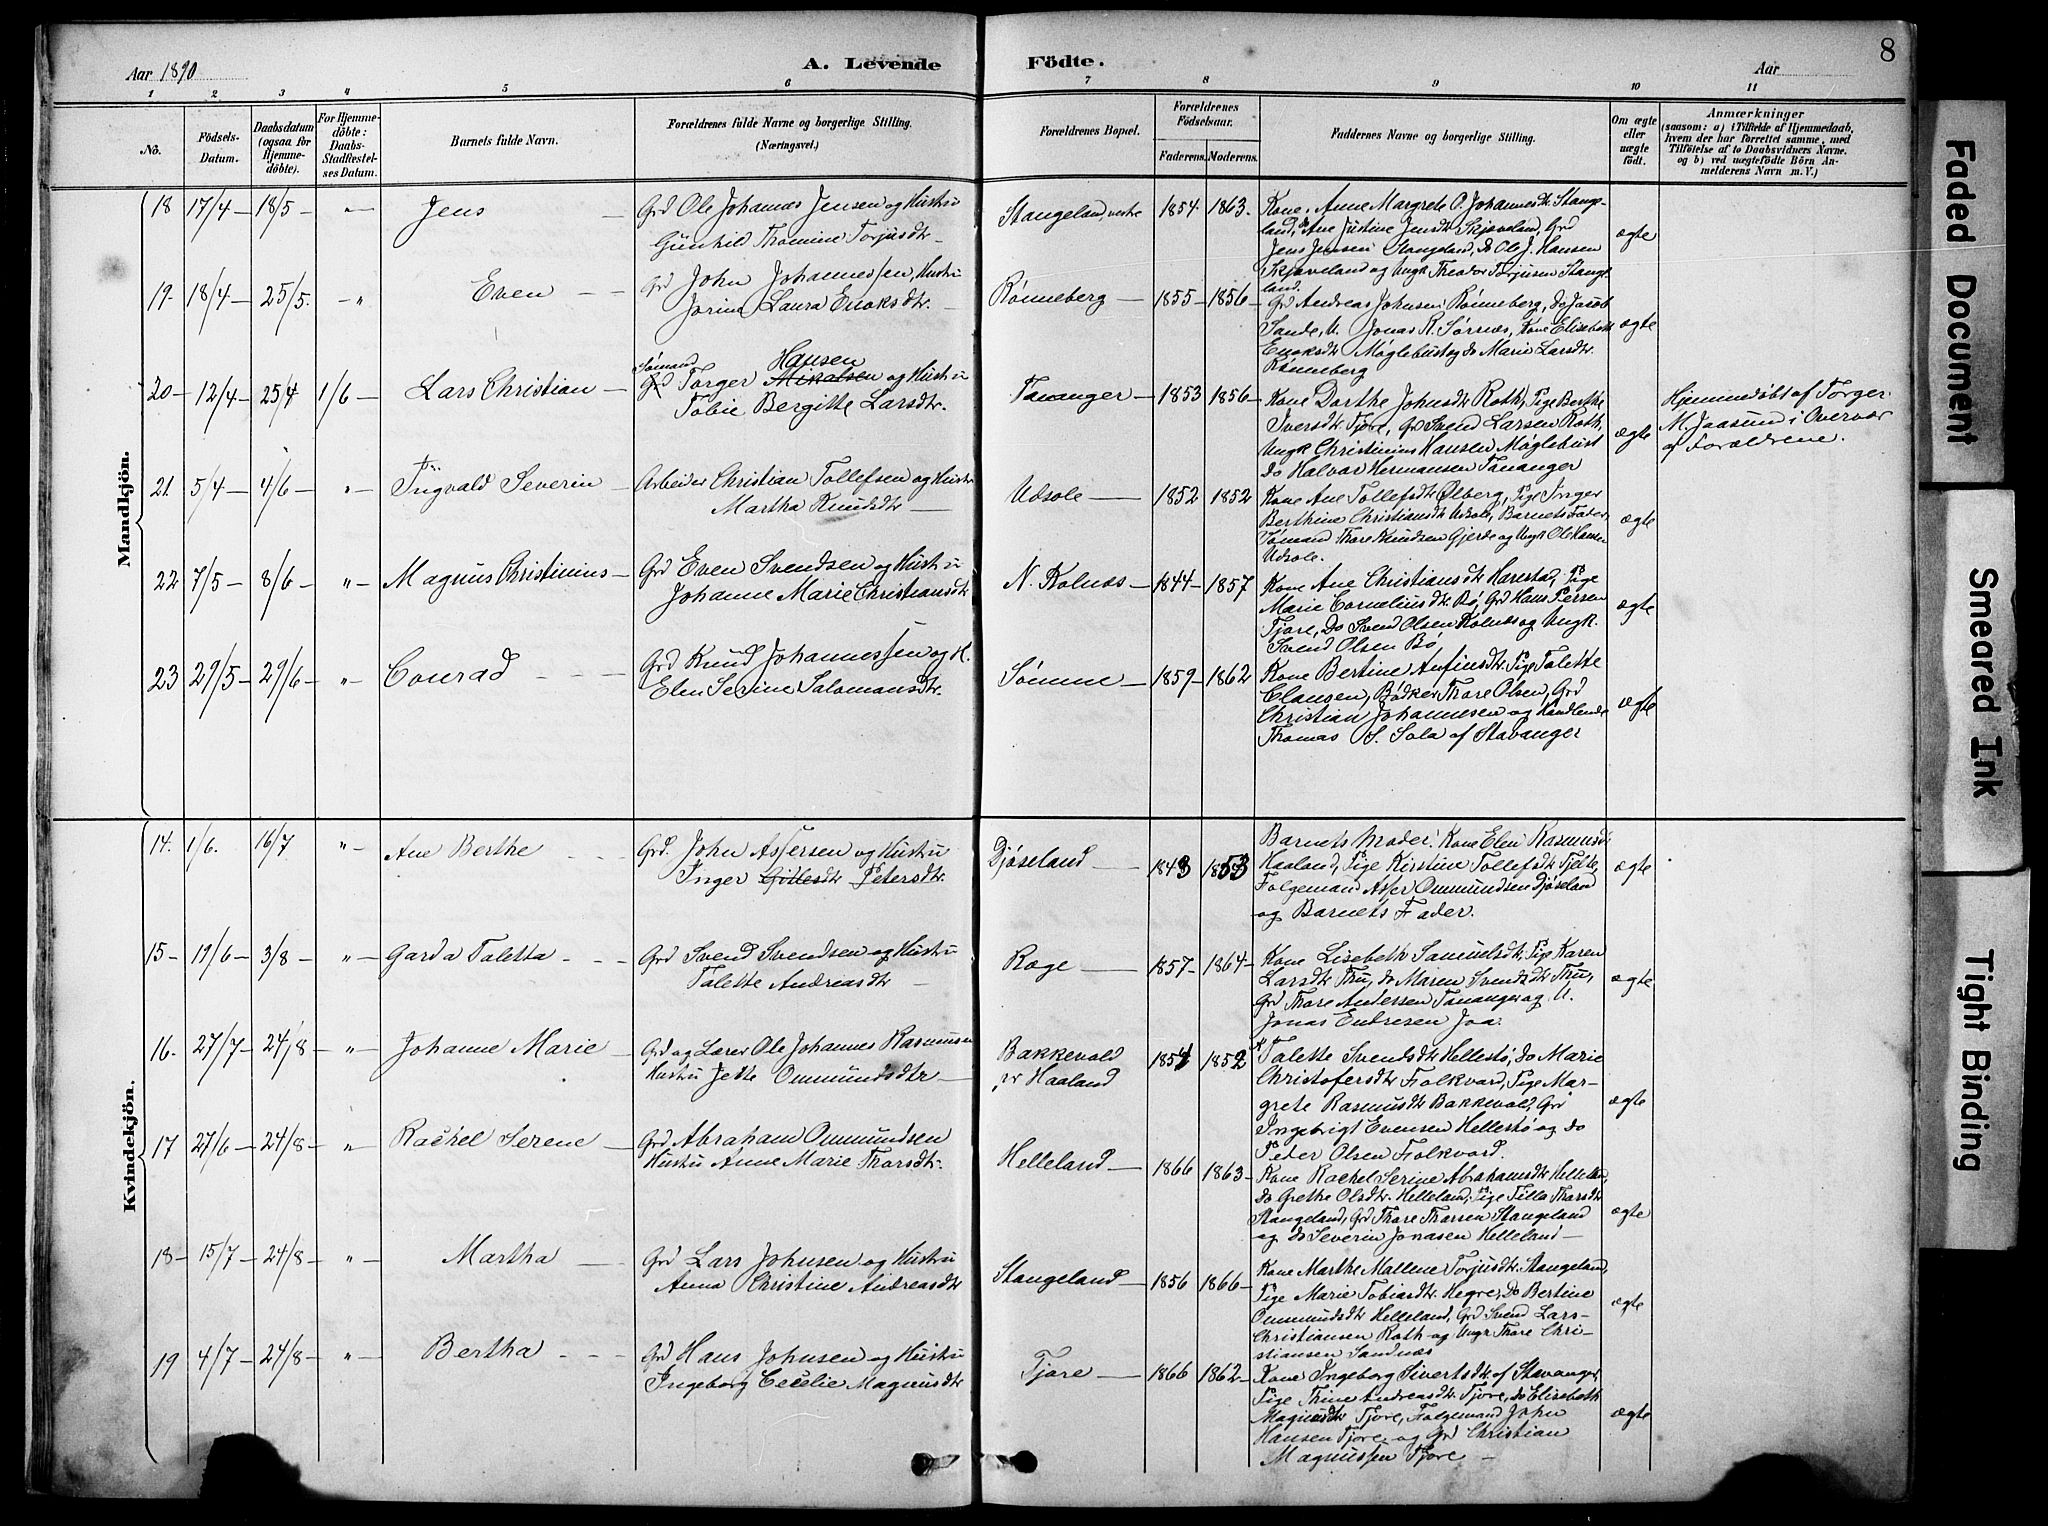 Aar 1890
A. Levende
Födte.
Aar
8
1 2 3 4 5 6 7 8 9 10 11
No.
Födsels-Datum.
Daabsdatum (ogsaa for Hjemmedöbte).
For Hjemmedöbte: Daabs-Stadfæstelses Datum.
Barnets fulde Navn.
Forældrenes fulde Navne og borgerlige Stilling.
(Næringsvei.)
Forældrenes Bopæl.
Forældrenes Födselsaar.
Faderens. Moderens.
Faddernes Navne og borgerlige Stilling.
Om ægte eller uægte födt.
Anmærkninger
(saasom: a) i Tilfælde af Hjemmedaab, hvem der har forrettet samme, med Tilföielse af to Daabsvidners Navne. og b) ved uægtefödte Börn Anmelderens Navn m. V.)
Mandkjön.
18 17/4 18/5 " Jens
Grd Ole Johannes Jensen og Hustru
Gunhild Thomine Torjusdtr
Stangeland vestre 1854 1863
Kone Anne Margrete O. Johannesdtr Stange-
land, do Ane Justine Jensdtr Skjæveland, Grd
Jens Jensen Stangeland, do Ole J. Hansen
Skjæveland og Ungk Theodor Torjusen Stange-
land.
ægte
19 18/4 25/5 " Even
Grd John Johannessen, Hustru
Jorina Laura Enoksdtr.
Rønneberg 1855 1856
Grd Andreas Johnsen Rønneberg, do Jacob
Sande, U. Jonas R. Sørnæs, Kone Elisabeth
Enoksdtr Møglebust og do Marie Larsdtr.
Rønneberg
ægte
20 12/4 25/4 1/6 Lars Christian
Sømand Hansen
Grd Torger Mikalsen og Hustru
Tobie Bergitte Larsdtr.
Tananger 1853 1856
Kone Dorthe Johnsdtr Roth, Pige Berthe
Iversdtr Tjore, Grd Svend Larsen Roth,
Ungk Christinius Hansen Møglebust
do Halvor Hermansen Tananger
ægte
Hjemmedøbt af Torger
M. Jaasund i Overvær
af Forældrene.
21. 5/4 4/6 " Ingvald Severin
Arbeider Christian Tollefsen og Hustru
Martha Knudsdtr
Udsole 1852 1852
Kone Ane Tollefsdtr Ølberg, Pige Inger
Berthine Christiansdtr Udsole, Barnets Fader,
Sømand Thore Knudsen Gjerde og Ungk Ole Hansen
Udsole.
ægte
22 7/5 8/6 " Magnus Christinius
Grd Even Svendsen og Hustru
Johanne Marie Christiansdtr
N. Kolnæs 1844 1857
Kone Ane Christiansdtr Harestad, Pige
Marie Corneliusdtr Bø, Grd Hans Persen
Tjore, Do Svend Olsen Kolnæs og Ungk.
Svend Olsen Bø
ægte
23 29/5 29/6 " Conrad
Grd Knud Johannessen og H.
Elen Serine Salomonsdtr.
Sømme 1859 1862
Kone Bertine Anfinsdtr, Pige Talette
Clausen, Bødker Thore Olsen, Grd
Christian Johannesen og Handlende
Thomas S. Sola af Stavanger
ægte
Kvindekjön.
14. 1/6. 16/7 " Ane Berthe
Grd. John Assersen og Hustru
Inger Gittesdtr Petersdtr.
Djøseland 1843 1853
Barnets Moder, Kone Elen Rasmusd
Haaland, Pige Kirstine Tollefsdtr Tjelta,
Folgemand Asser Ommundsen Djøseland
og Barnets Fader.
ægte
15 11/6 3/8 " Garda Taletta
Grd Svend Svendsen og Hustru
Talette Andreasdtr
Røge 1857 1864
Kone Lisebeth Samuelsdtr, Pige Karen
Larsdtr Thu, do Maren Svendsdtr Thu,
Grd Thore Andersen Tananger og U.
Jonas Endresen Joa.
ægte
16. 27/7 24/8 " Johanne Marie
Grd og Lærer Ole Johannes Rasmussen
Hustru Jette Ommundsdtr
Bakkevold
pr Haaland
1854 1852
K Talette Svendsdtr Hellestø, do Marie
Christofersdtr Folkvord, Pige Mar-
grete Rasmusdtr Bakkevold, Grd
Ingebrigt Evensen Hellestø og do
Peder Olsen Folkvord.
ægte
17 27/6 24/8 " Rachel Serene
Grd Abraham Ommundsen
Hustru Anne Marie Thorsdtr.
Helleland 1866 1863
Kone Rachel Serine Abrahamsdtr Helleland,
do Grethe Olsdtr Helleland, Pige Tilla Thorsdtr
Stangeland, Grd Thore Thorsen Stangeland
og do Severin Jonasen Helleland
ægte
18 15/7 24/8 " Martha
Grd Lars Johnsen og Hustru
Anna Christine Andreasdtr
Stangeland 1856 1866
Kone Marthe Mallene Torjusdtr Stangeland,
Pige Marie Tobiasdtr. Hegre, Do Bertine
Ommundsdtr Helleland, Grd Svend Lars-
Christiansen Roth og Ungk Thore Chri-
stiansen Sandnæs
ægte
19 4/7 24/8 " Bertha
Grd Hans Johnsen og Hustru
Ingeborg Cecilie Magnusdtr
Tjore 1866 1862
Kone Ingeborg Sivertsdtr af Stavanger,
Pige Thine Andreasdtr Tjore, do Elisabeth
Magnusdtr Tjore, Folgemand John
Hansen Tjore og Grd Christian
Magnussen Tjore
ægte
Faded Document
Smeared Ink
Tight Binding